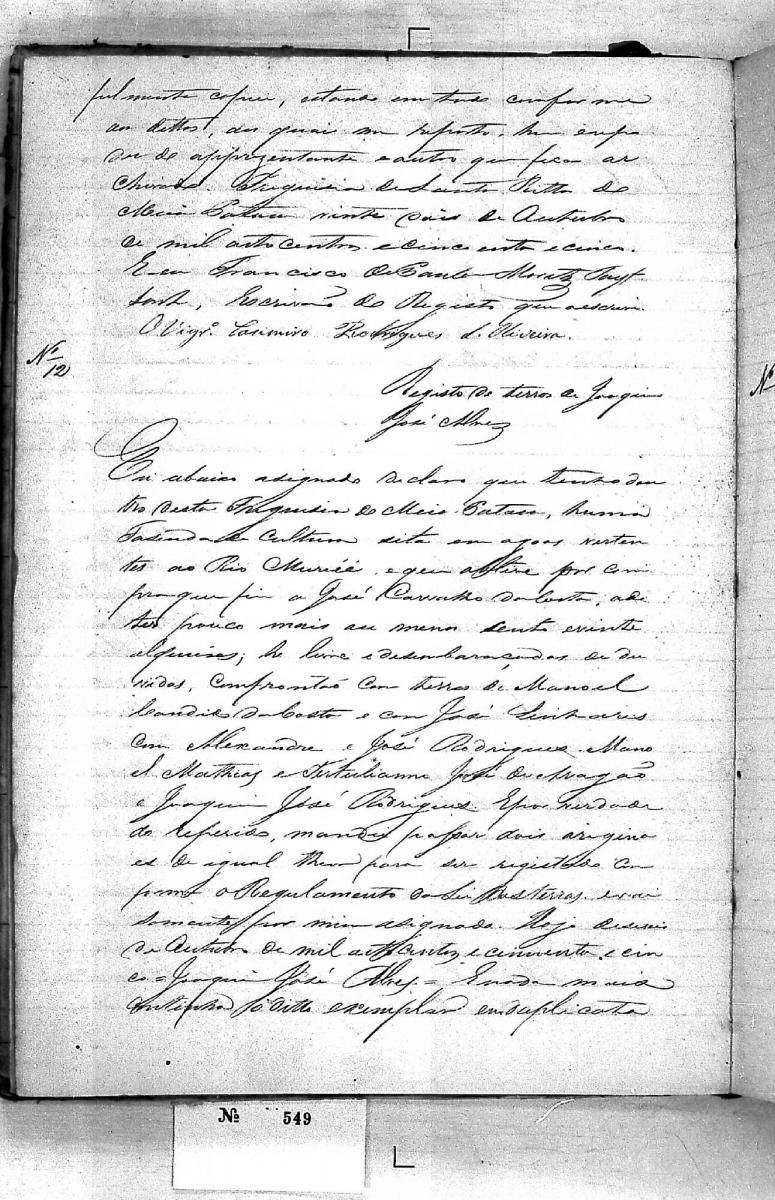 fielmente copiei, estando em tudo conforme
aos dittos, dos quais me reporto, hum em po
der do apprezentante e outro que fica ar
chivado. Freguisia de Santa Ritta do
Meia Pataca vinte dois de Outubro
de mil oito centos e cincoenta e cinco.
E eu Francisco de Paula Moretz
Escrivaõ do Registo que o escrivi.
O Vigrº. Casimiro Rodrigues d'Oliveira.
Nº 12
Registo de terras de Joaquim
José Alves
Eu abaixo asignado declaro que tenho den
tro desta Freguisia do Meia Pataca, huma
Fasenda de Cultura sita em agoas verten
tes ao Rio Muriéé, e que obtive por com
pra que fiz a José Carvalho da Costa, o
ter pouco mais ou menos sento e vinte
alqueires; he livre e desembaraçadas de du
vidas, Confrontaõ com terras de Manoel
Candido da Costa e com José Linhares
com Alexandre e José Rodrigues Mano
el Mathias e Tertulianno José de Aragaõ
e Joaquim José Rodrigues. E por verdade
do referido, mandei passar dois origina
es de igual theor para ser registado con
forme o Regulamento da Lei das terras. e vai
somente por mim asignado. Hoje deseseis
de Outubro de mil oito centos e cincoenta e cin
co = Joaquim José Alves. = E nada mais
continha o ditto exemplar em duplicata
Nº 549
Nº